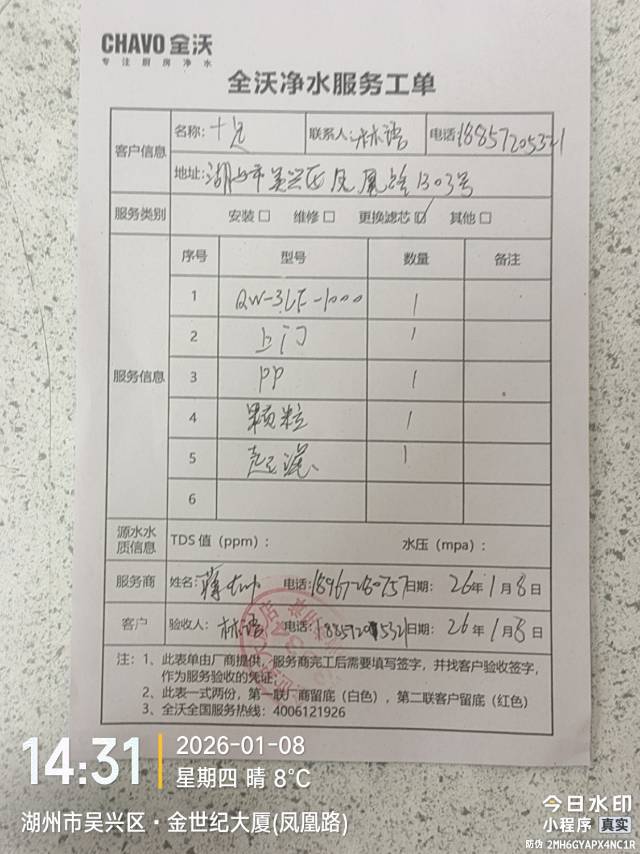 CHAVO 全沃
专注厨房净水
全沃净水服务工单
客户信息 名称: 联系人:林语 电话:18857205321
地址:湖州市吴兴区凤凰路1303号
服务类别 安装☐ 维修☐ 更换滤芯☑ 其他☐
服务信息 序号 型号 数量 备注
1 QW-3LF-1000 1
2 上门 1
3 PP 1
4 颗粒 1
5 1
6
源水水质信息 TDS 值(ppm): 水压(mpa):
服务商 姓名: 电话:18967280757 日期: 26年1月8日
客户 验收人:林语 电话:18857205321 日期: 26年1月8日
注:1、此表单由厂商提供,服务商完工后需要填写签字,并找客户验收签字,
作为服务验收的凭证;
2、此表一式两份,第一联厂商留底(白色),第二联客户留底(红色)
3、全沃全国服务热线:4006121926
14:31
2026-01-08
星期四 晴 8℃
湖州市吴兴区·金世纪大厦(凤凰路)
今日水印
小程序 真实
防伪 2MH6GYAPX4NC1R